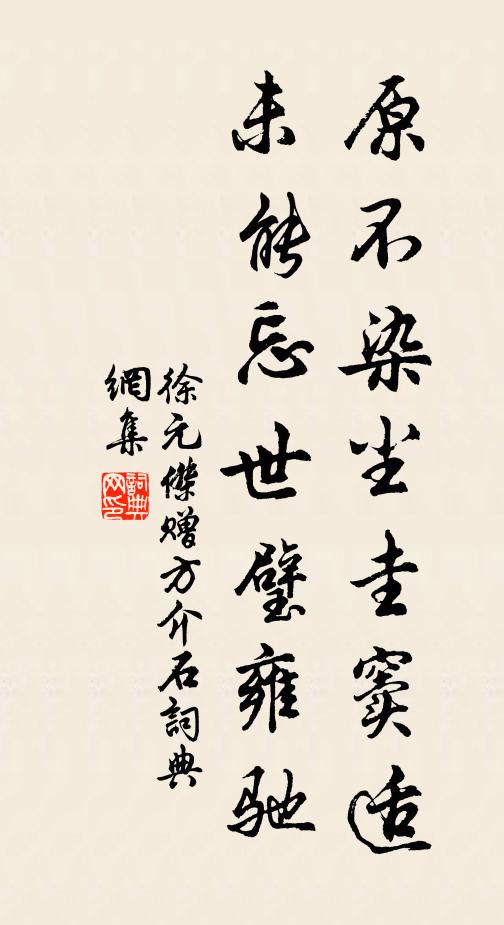 原不染尘圭窦适
未能忘世璧雍驰
徐元傑赠方介石詞典
網集
詞典
网印